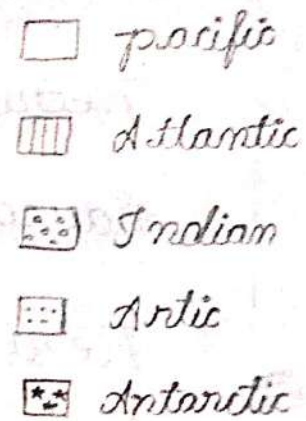 pacific
Atlantic
Indian
Artic
Antarctic